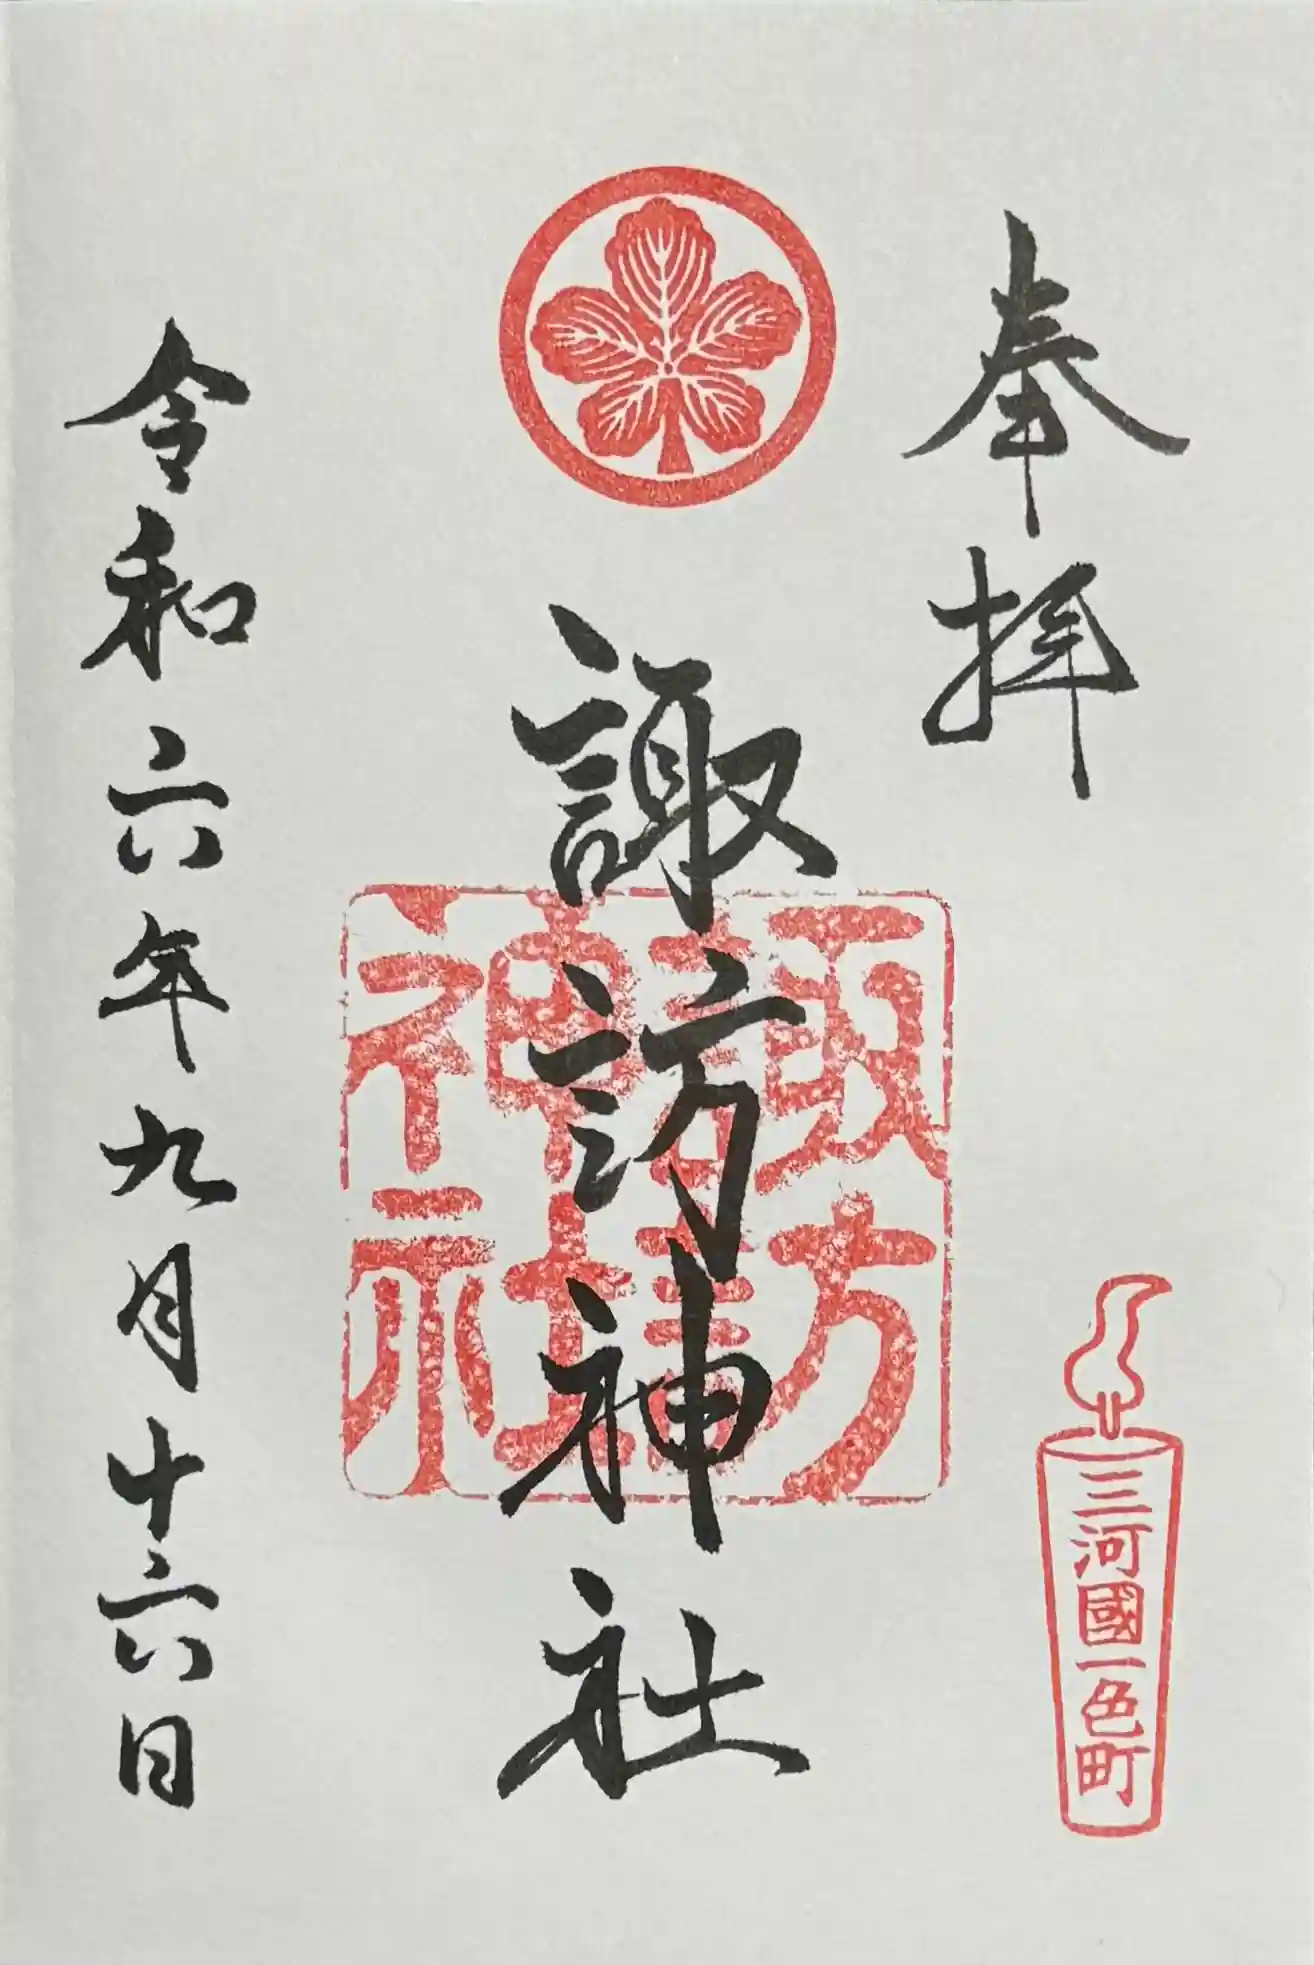 奉拝
三河國一色町
諏訪神社
諏訪
神社
令和六年九月十六日